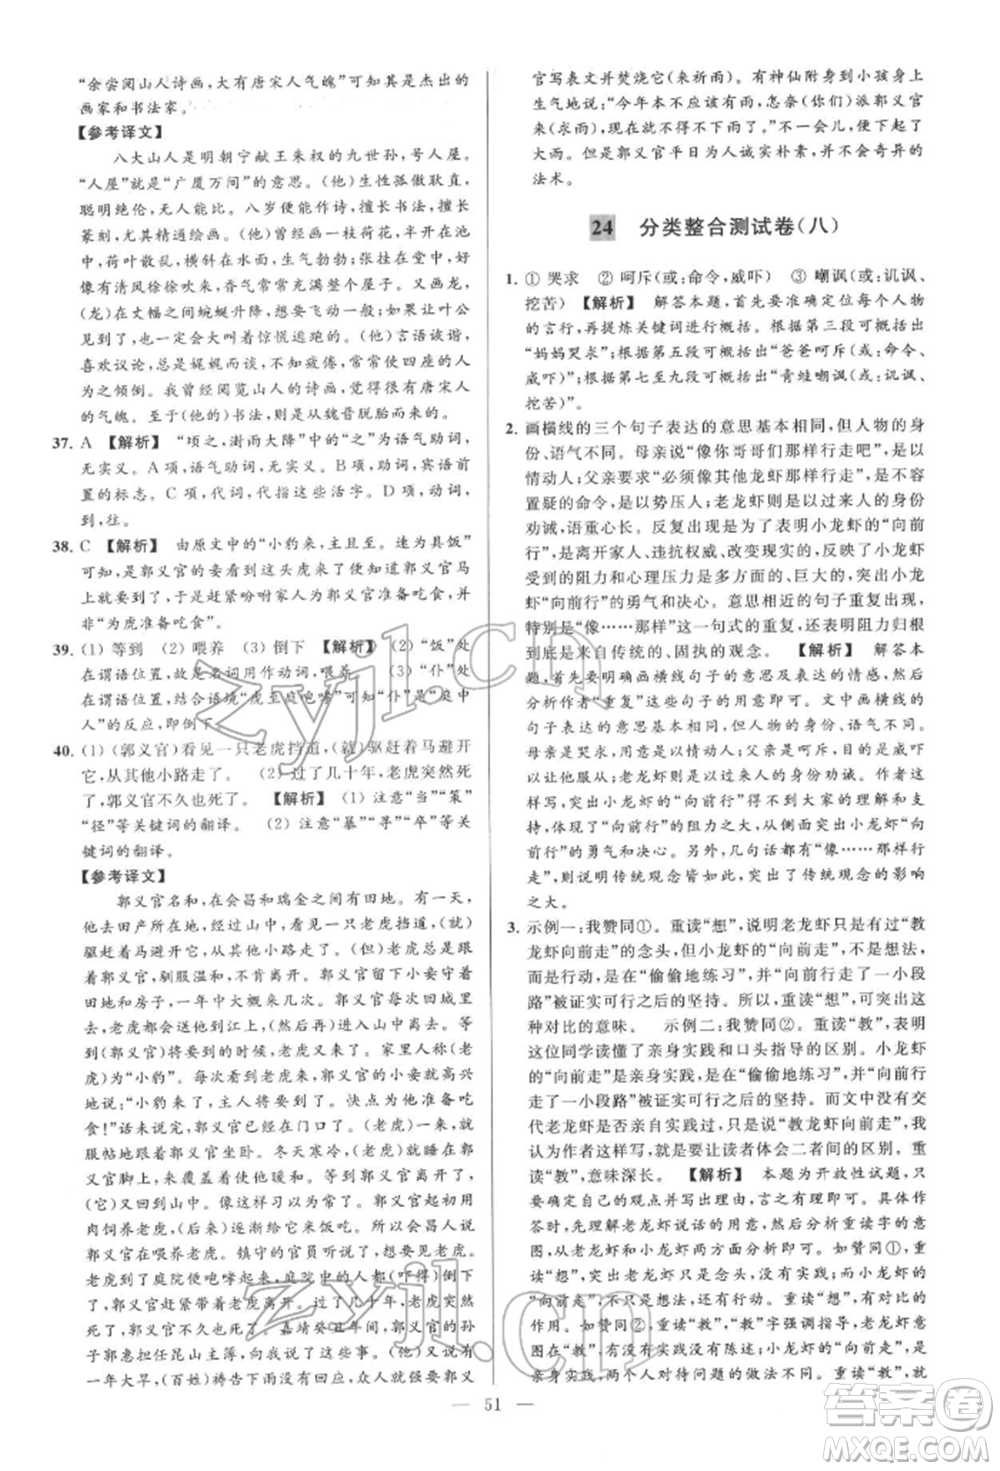 “余尝阅山人诗画,大有唐宋人气魄”可知其是杰出的
画家和书法家。
【参考译文】
八大山人是明朝宁献王朱权的九世孙,号人屋。
“人屋”就是“广厦万间”的意思。(他)生性孤傲耿直,
聪明绝伦,无人能比。八岁即能作诗,擅长书法,擅长
篆刻,尤其精通绘画。(他)曾经创作一枝荷花,半开的
荷叶散乱,横斜在水面上,生意盎然;张挂在中堂上,
好像有清风徐徐吹来,香气常常充满整个屋子。又画龙,
(龙)在丈幅之间蜿蜒升降,好像要飞动起来;如果叶公
看到,也一定会大叫着惊慌逃跑的。(他)言语诙谐,
喜欢议论,总是娓娓而谈,不知疲倦,常常使四座的人
为之倾倒。我曾经阅览山人的诗画,觉得很有唐宋人
的气魄。至于(他的)书法,则是从魏晋脱胎而来的。
37. A 【解析】 “顷之,澍雨大降”中的“之”为语气助词,
无实义。A 项,语气助词,无实义。B 项,助词,宾语前
置的标志。C 项,代词,代指这些活字。D 项,动词,
到,往。
38. C 【解析】 由原文中的“小豹来,主且至。速为具饭”
可知,是郭义官的妾看到这头虎了便知道郭义官马
上要到了,于是赶紧吩咐家人为郭义官准备吃食,并
非“为虎准备吃食”。
39. (1) 等到 (2) 喂养 (3) 倒下 【解析】 (2) “饭”处
在谓语位置,故是名词用作动词,喂养。 (3) “仆”处
在谓语位置,结合语境“虎至庭咆哮”可知“仆”是“庭中
人”的反应,即倒下。
40. (1) (郭义官)看见一只老虎挡道,(就)驱赶着马避开
它,从其他小路走了。 (2) 过了几十年,老虎突然死
了,郭义官不久也死了。 【解析】 (1) 注意“当”“策”
“径”等关键词的翻译。 (2) 注意“暴”“寻”“卒”等关
键词的翻译。
【参考译文】
郭义官名和,在会昌和瑞金之间有田地。有一天,
他去田产所在地,经过山中,看见一只老虎挡道,(就)
驱赶着马避开它,从其他小路走了。(但)老虎总是跟
着郭义官,驯服温和,不肯离开。郭义官的小妾守着
田地和房子,一年中大概来几次。郭义官前往城里
去,老虎会送他到江上,(然后)进入山中离开;等到
(郭义官)将要到的时候,老虎会来。家里人称(老
虎)为“小豹”。每次看到它来,郭义官的小妾就高兴
地说:“小豹来了,主人将要到了。快点为他准备吃
食!”话未说完,郭义官就已到门口了。(老虎)一来,就
服帖地围绕郭义官坐卧。冬天寒冷,(老虎)卧在郭义
官脚上,给他温暖。(等到郭义官)睡着,(老虎)才离开,
(过后)又回到原处。像这样习以为常。郭义官起初用
肉饲养老虎,(后来)逐渐给它米饭,所以会昌人说
郭义官在喂养老虎。镇守的官员听说了,想要见它。
老虎到了庭院便咆哮起来,庭院中的人都(吓得)倒下
了,郭义官赶紧带着老虎离开。过了几十年,老虎突
然死了,郭义官不久也死了。嘉靖癸丑年间,郭义官的孙
子郭惠担任昆山主簿,为我说了这些事。(他)又说
岁大旱,(百姓)祷告下雨没有回应,众人就请求郭义
官写表文并焚烧它(来祈雨)。有神仙附身到小孩身上
生气地说:“今年本来没有雨,怎奈(你们)派了郭义官
来(求雨),就不得不得下了。”不一会儿,便下起了
大雨。但是郭义官平日为人诚实朴素,并不会奇异的
法术。
24 分类整合测试卷(八)
1. ① 哭求 ② 呵斥(或:命令,威吓) ③ 嘲讽(或:讥讽、
挖苦) 【解析】 解答本题,首先要准确定位每个人物
的言行,再提炼关键词进行概括。根据第三段可概括出
“妈妈哭求”;根据第五段可概括出“爸爸呵斥(或:命令,
威吓)”;根据第七至九段可概括出“青蛙嘲讽(或:讥讽、
挖苦)”。
2. 画横线的三个句子表达的意思基本相同,但人物的身
份、语气不同。母亲说“像你哥哥们那样行走吧”,是以
情动人;父亲要求“必须像其他龙虾那样行走”,是不容
置疑的命令,是以势压人;老龙虾是以过来人的身份
劝诫,语重心长。反复出现是为了表明小龙虾的“向前
行”,是离开家人、违抗权威、改变习俗的,反映了小龙虾
受到的阻力和心理压力是多方面的、巨大的,突出小龙
虾“向前行”的勇气和决心。意思相近的句子重复出现,
特别是“像……那样”句式的重复,还表现传统势力对
人的影响是顽固的、固执的观念。 【解析】 解答本
题,首先要画出横线句子,再进行分析。文中画横线的
句子表达的意思基本相同,但人物的身份、语气不同。
母亲是哭求,是以情动人;父亲是呵斥,是居高临下的威吓
命令;老龙虾则是以过来人的身份劝诫。这样
写,突出小龙虾的“向前行”得不到大家的理解和支
持,突出了“向前行”的阻力之大,从而突出小龙虾“向前
行”的勇气和决心。另外,几句话都有“像……那样行
走”,从而表现传统势力、传统观念对人的影响
之大。
3. 示例一:我赞同①。重读“想”,说明老龙虾只是有过“教
龙虾向前走”的念头,但小龙虾的“向前走”,不是想法,
而是行动,是在“偷偷地练习”,是“向前行走了一小段
路”被证实可行之后的坚持。所以,重读“想”,突出了这
种对比的意味。 示例二:我赞同②。重读“教”,表明
这位同学读懂了亲身实践和口头指导的区别。小龙虾
的“向前走”是亲身实践,是在“偷偷地练习”,“向前行
走了一小段路”就被证明可行的坚持。文末没有交
代老龙虾是否亲身实践过,只说“教龙虾向前走”,
我认为作者这样写,就是要让读者体会二者间的区别。重
读“教”,意味深长。 【解析】 本题为开放性试题,只
要确定自己的观点并写出理由,言之成理即可。具体作
答时,先理解老龙虾说话的用意,然后分析重读字的意
图,从老龙虾和小龙虾两方面分析即可。重读
“想”,突出老龙虾只是想过,没有做,而小龙虾的
“向前走”,不只是想法,而是行动。重读“教”,突出
是口头指导。重读“教”,“教”字强调指导,老龙虾也许
没有实践过,只是口头概述,而小龙虾的“向前走”,则
是亲身实践,这样写突出了二者的区别。
— 51 —
zyjl.cn
zyjl.cn
答案圈
MXQE.COM